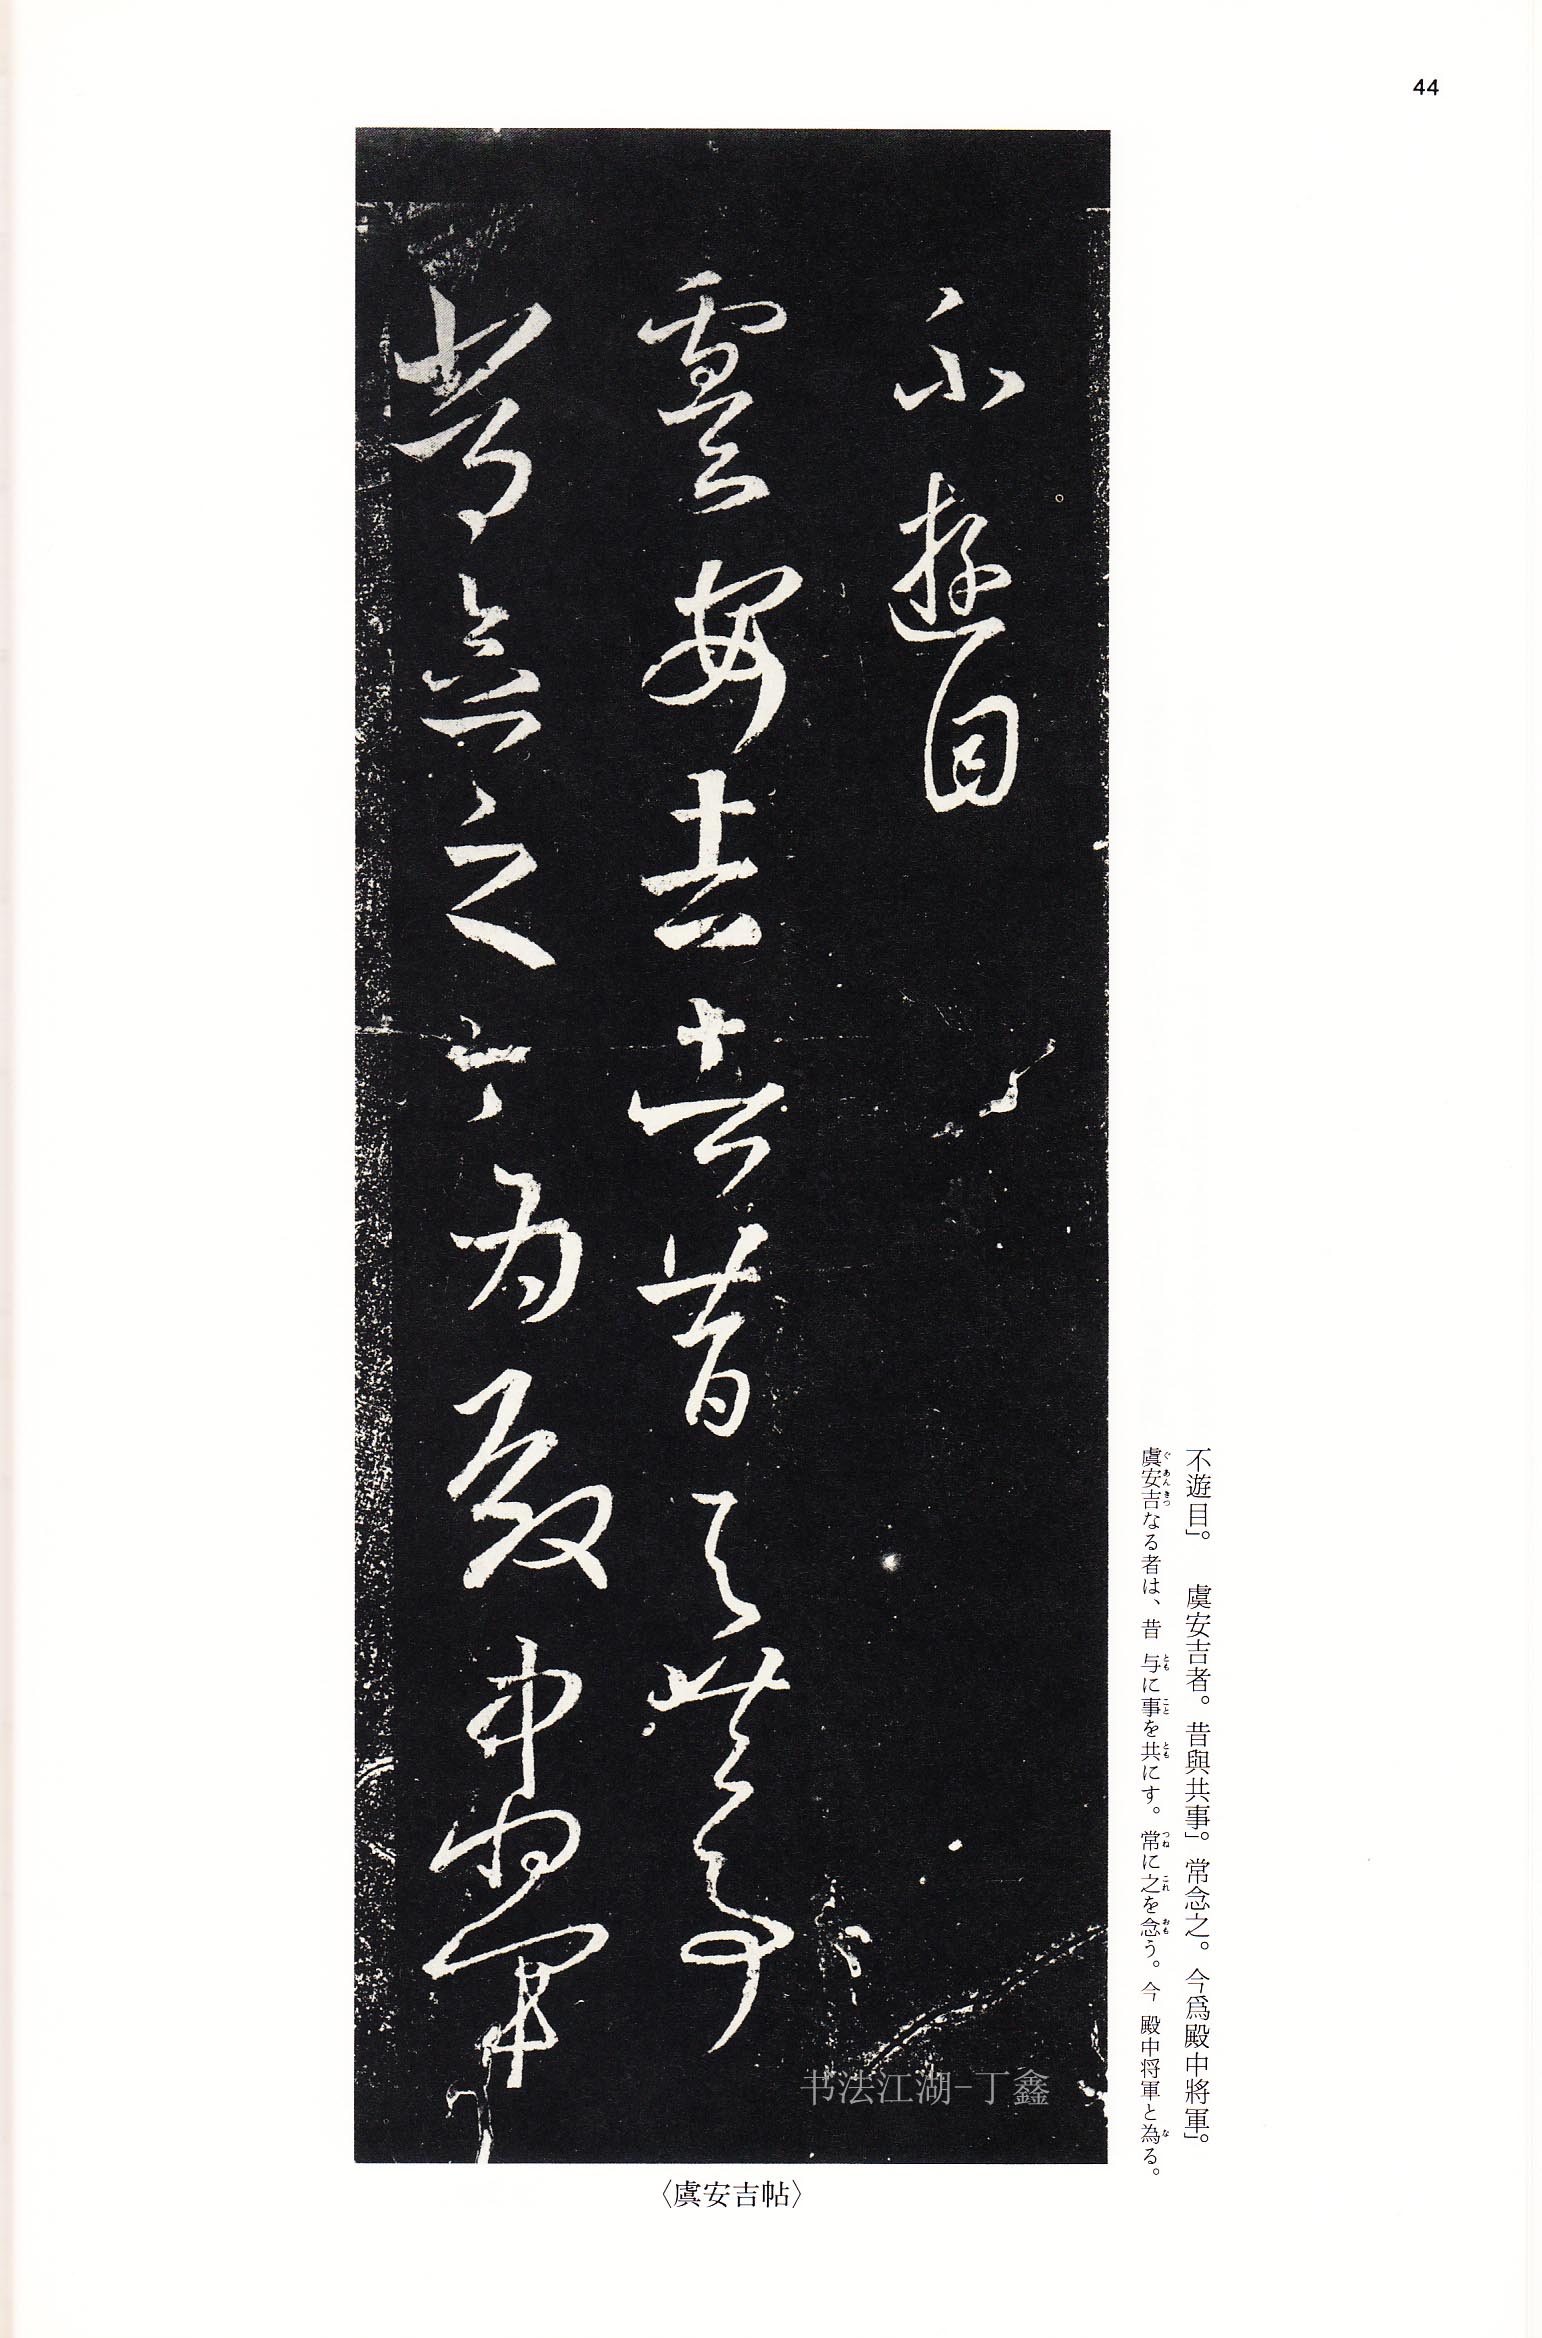 44
不遊目
虞安吉者昔與共事
常念之今為殿中將軍
不遊目」。　虞安吉者。昔與共事」。常念之。今爲殿中將軍」。
虞安吉なる者は、昔 与に事を共にす。常に之を念う。今 殿中将軍と為る。
ぐ あん きつ とも こと とも つね これ おも な
〈虞安吉帖〉
书法江湖-丁鑫